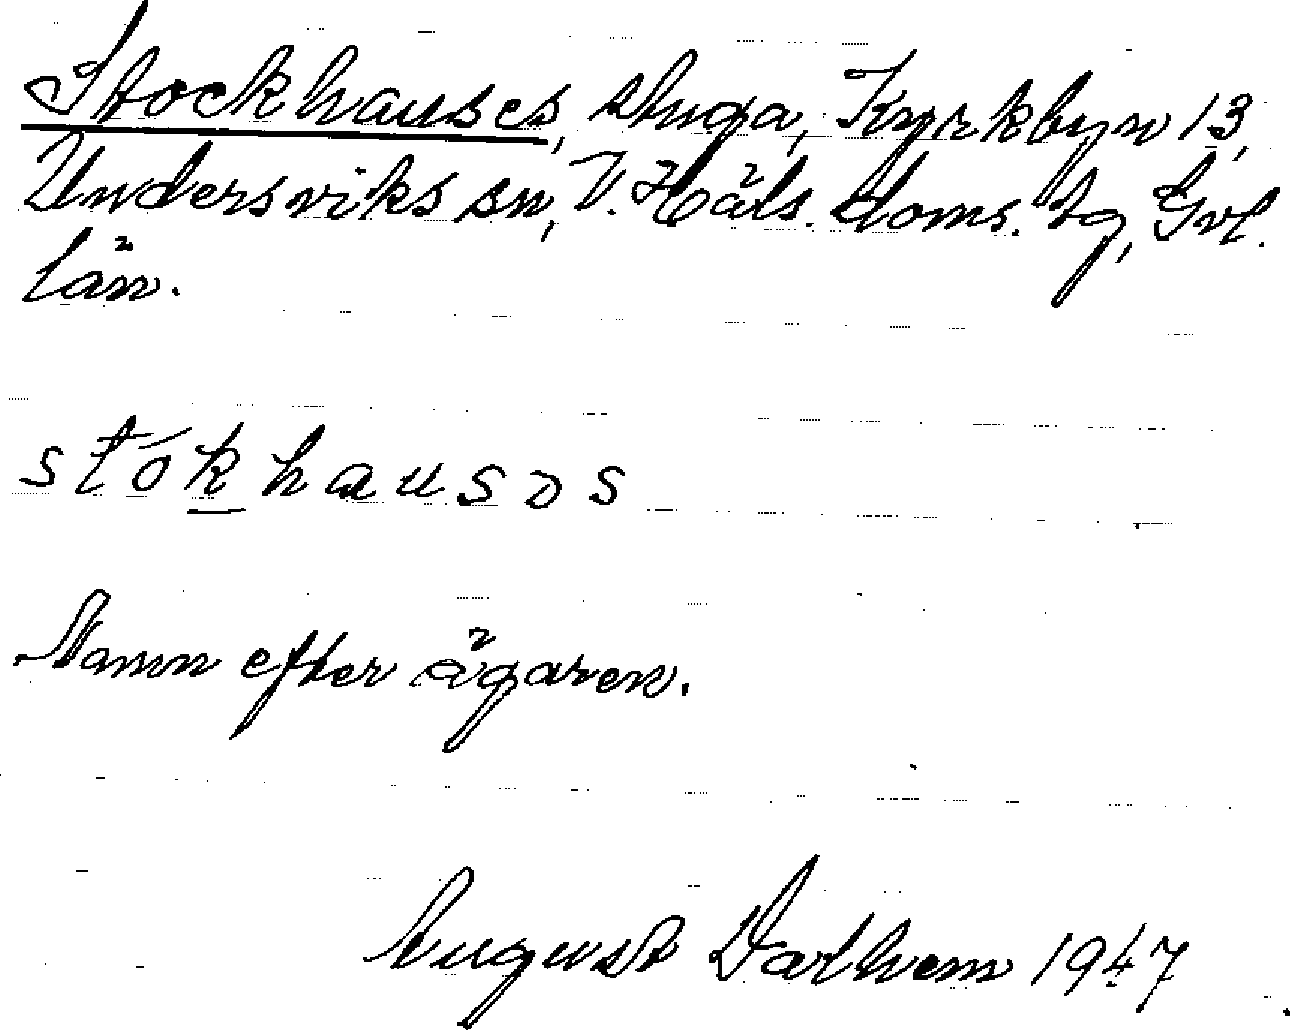 Stockhauses, stuga, Kyrkbyn 13,
Undersviks sn, V. Häls. doms. tg, Gvl.
län.
stókhausɔs
Namn efter ägaren.
August Dalhem 1947